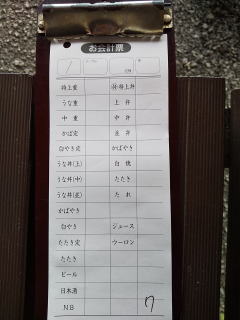 お会計票
特上重 (特)特上丼
うな重 上丼
中重 中丼
かば定 並丼
白やき定 かばやき
うな丼(上) 白焼
うな丼(中) たたき
うな丼(並) たれ
かばやき
白やき ジュース
たたき定 ウーロン
たたき
ビール
日本酒
NB 7